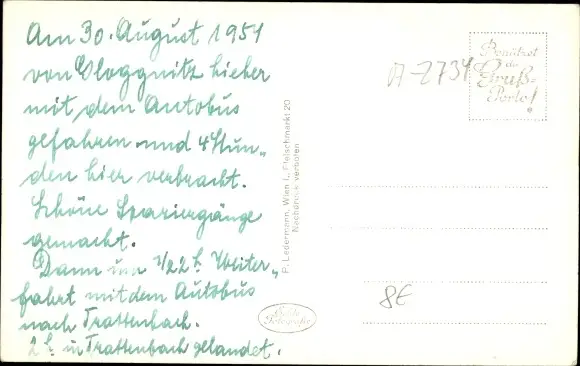 Am 30. August 1951
von Gloggnitz hieher
mit dem Autobus
gefahren und 4 Stun„
den hier verbracht.
Schöne Spaziergänge
gemacht.
Dann um 1/2 2 h Weiter„
fahrt mit dem Autobus
nach Trattenbach.
2 h in Trattenbach gelandet.
P. Ledermann, Wien I., Fleischmarkt 20
Nachdruck verboten
Echte
Fotografie
A-2734
Benützst
du
Gruß-
Porto!
8€